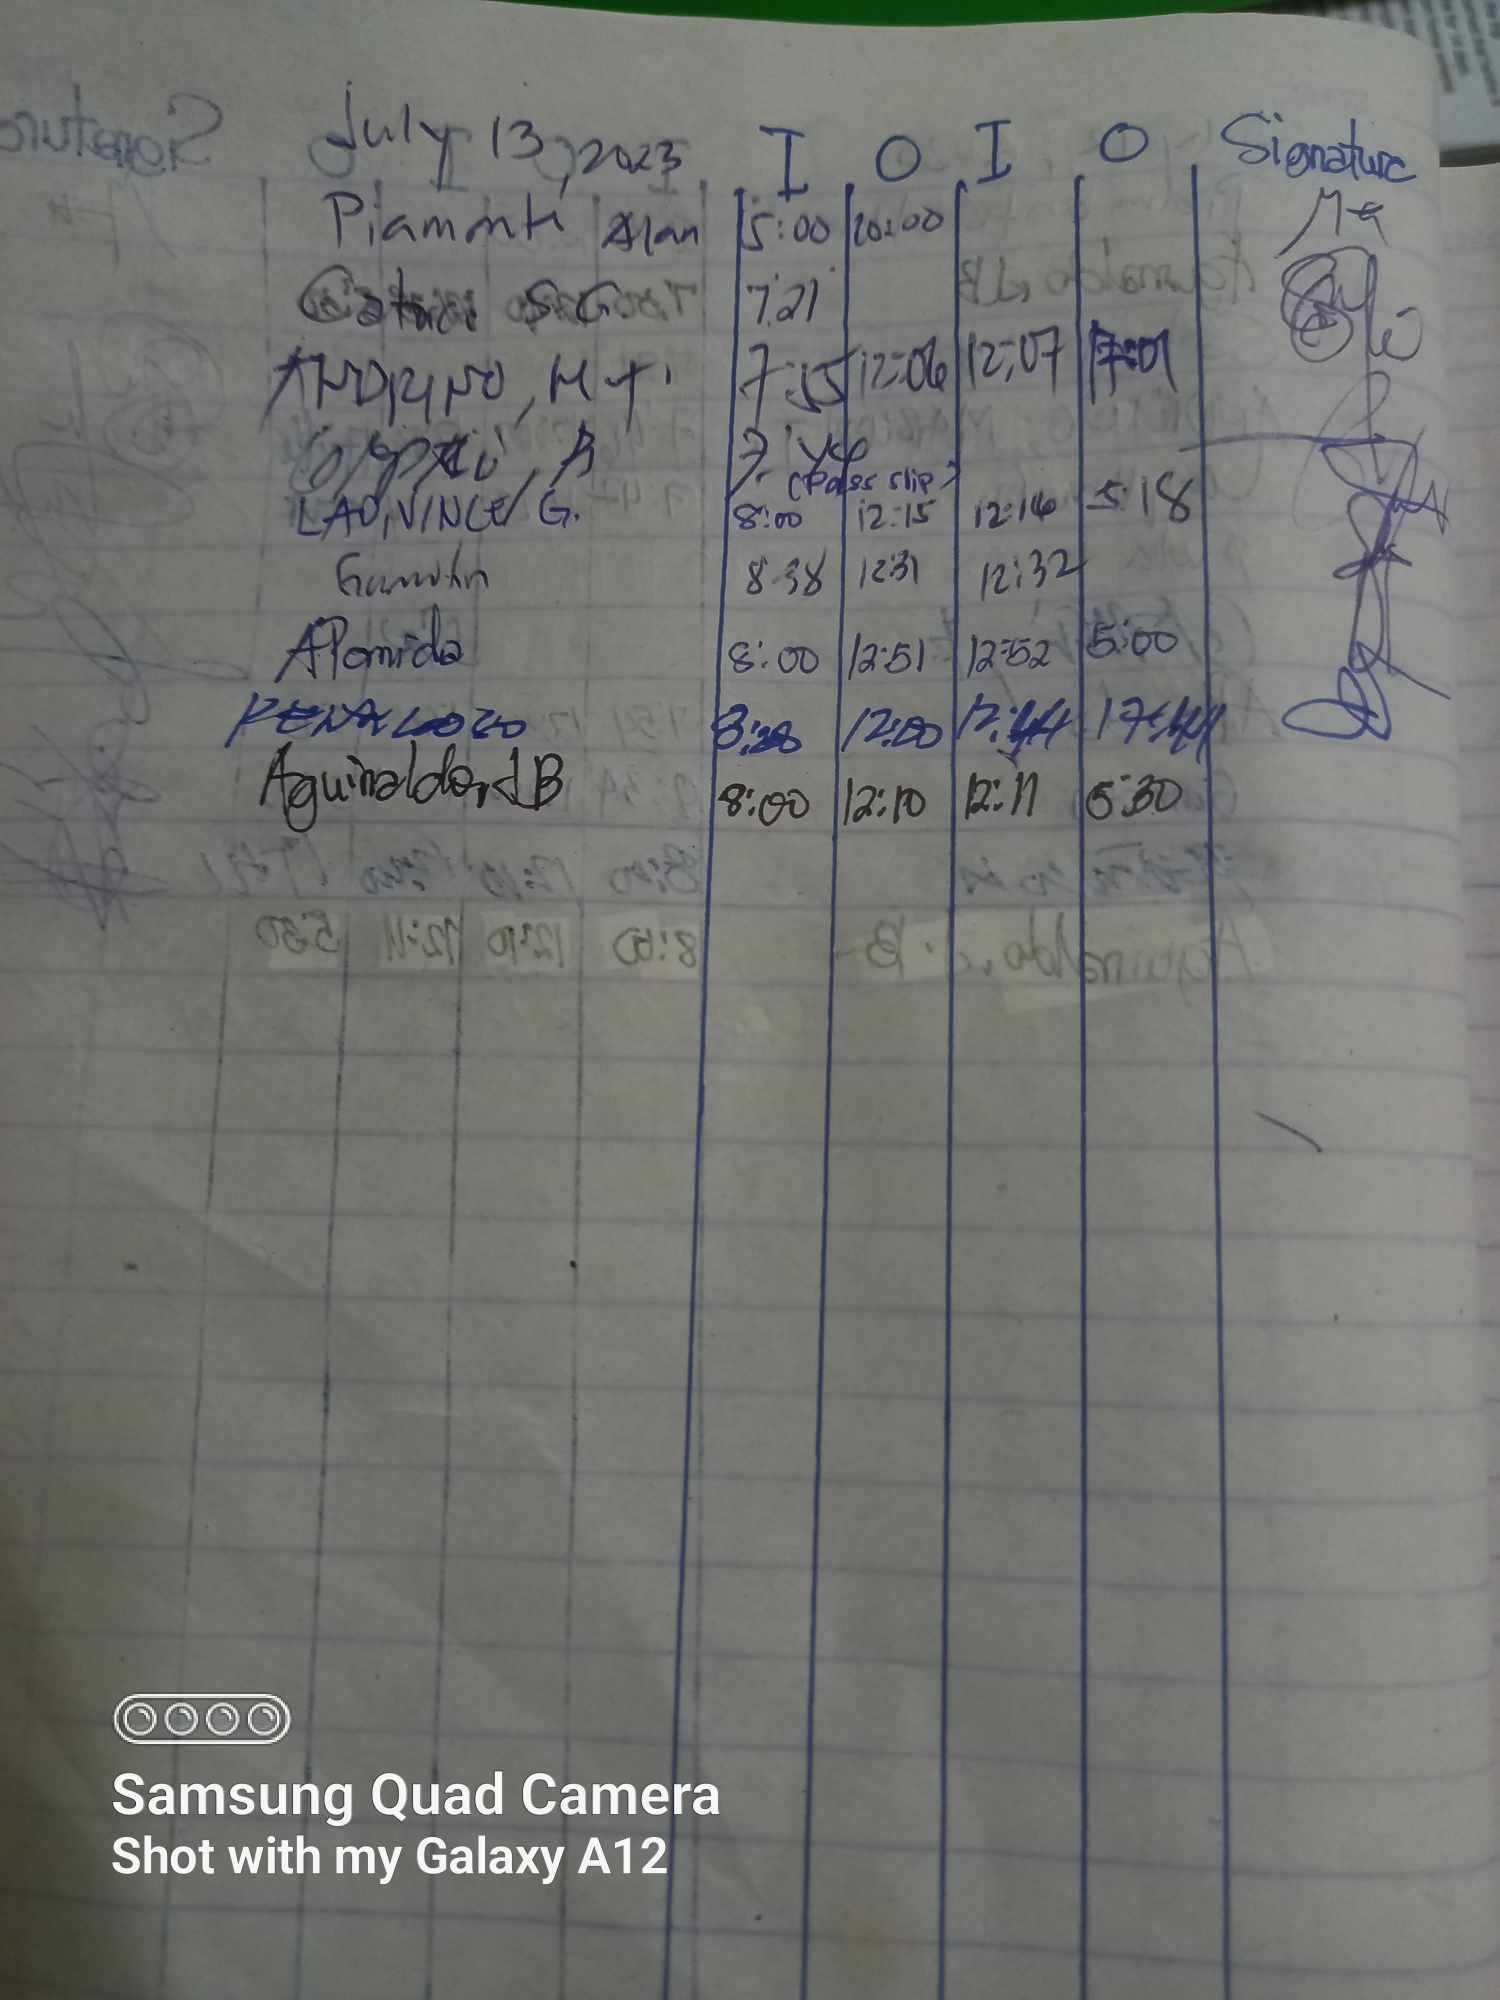 July 13, 2023 I O I O Signature
Piamonte Alan 5:00 20:00
S G 7:21
ANDRINO, M T. 7:55 12:06 12:07 17:01
7:44
(Pass slip)
LAO, VINCE G. 8:00 12:15 12:16 5:18
8:38 12:31 12:32
Alomida 8:00 12:51 12:52 5:00
12:00 12:44 17:44
Aguinaldo, JB 8:00 12:10 12:11 5:30
Samsung Quad Camera
Shot with my Galaxy A12